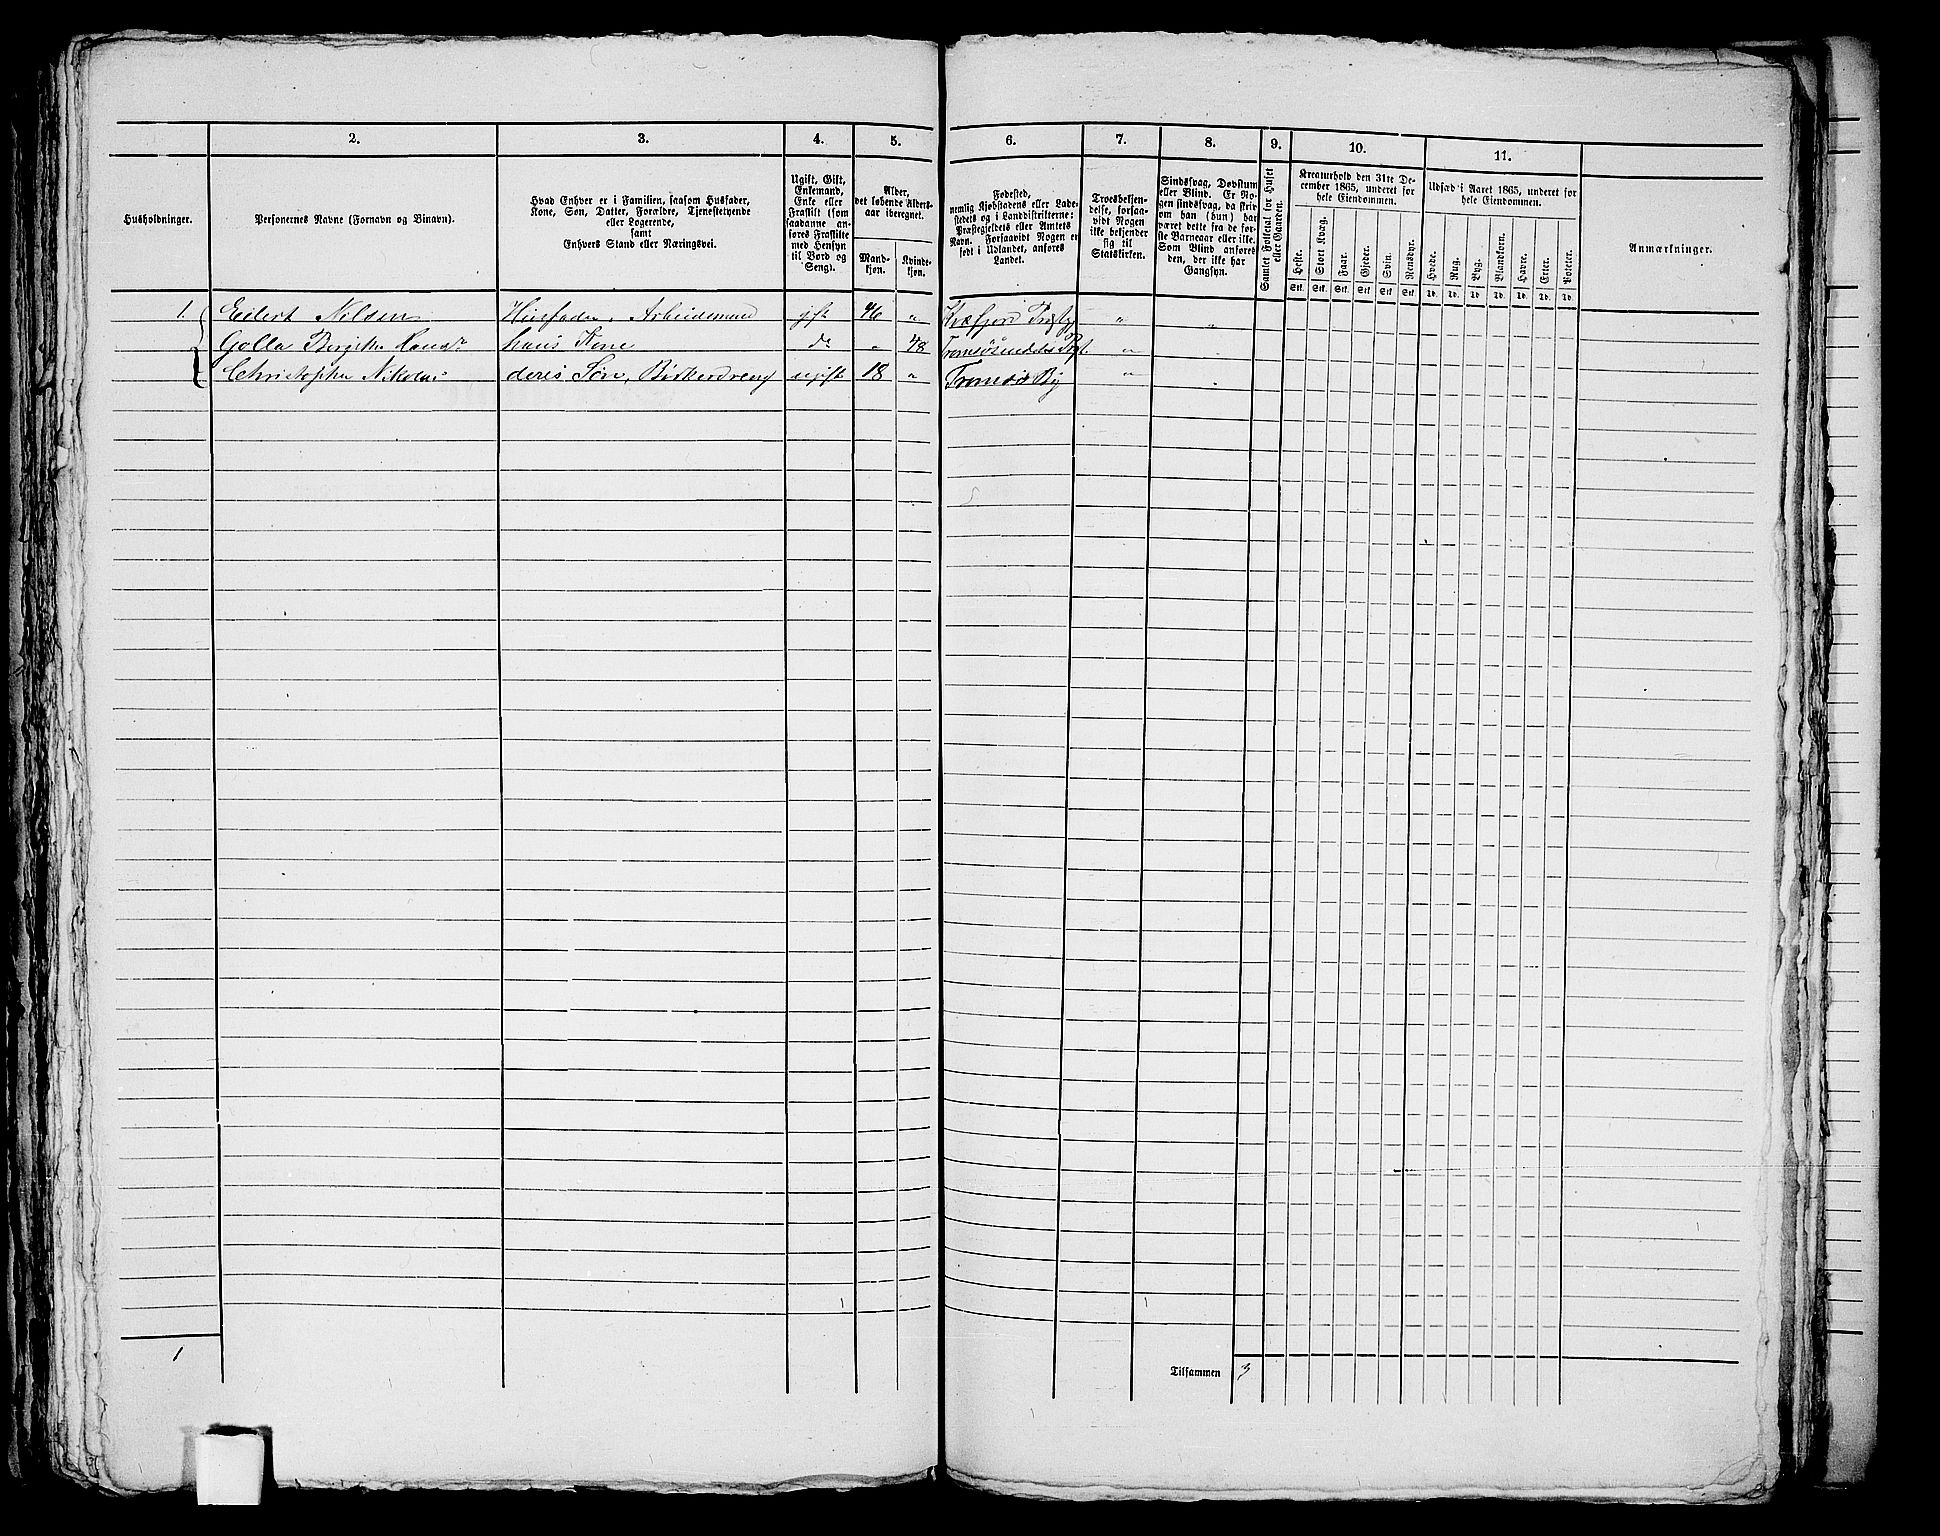 2. 3. 4. 5. 6. 7. 8. 9. 10. 11.
Husholdninger.
Personernes Navne (Fornavn og Binavn).
Hvad Enhver er i Familien, saasom Husfader,
Kone, Søn, Datter, Forældre, Tjenestetyende
eller Logerende,
samt
Enhvers Stand eller Næringsvei.
Ugift, Gift,
Enkemand,
Enke eller
Fraskilt (som
saadanne an-
føres Fraskilte
med Hensyn
til Bord og
Seng).
Alder,
det løbende Alders-
aar iberegnet.
Mand-
kjøn.
Kvinde-
kjøn.
Fødested,
nemlig Kjøbstadens eller Lade-
stedets og i Landdistrikterne:
Præstegjeldets eller Amtets
Navn. Forsaavidt Nogen er
født i Udlandet, anføres
Landet.
Troesbekjen-
delse, forsaa-
vidt Nogen
ikke bekjender
sig til
Statskirken.
Sindssvag, Døvstum
eller Blind. Er No-
gen sindssvag, da skriv
om han (hun) har
været dette fra de før-
ste Barneaar eller ille.
Som Blind anføres
den, der ikke har
Gangsyn.
Samlet Folketal for Huset
eller Gaarden.
Kreaturhold den 31te De-
cember 1865, underet for
hele Eiendommen.
Heste. Stort Kvæg. Faar. Gjeder. Svin. Rensdyr.
Stk. Stk. Stk. Stk. Stk. Stk.
Udsæd i Aaret 1865, underet for
hele Eiendommen.
Hvede. Rug. Byg. Blandkorn. Havre. Erter. Poteter.
Td. Td. Td. Td. Td. Td. Td.
Anmærkninger.
1. Eilert Nilsen Husfader, Arbeidsmand gift 46 " Kvæfjord Prstgj " "
Golla Bergithe hans Kone do " 48 Tromsøsundets Pgt. "
Christopher Nikolai deres Søn, Bødkerdreng ugift 18 " Tromsø By "
1
Tilsammen 3